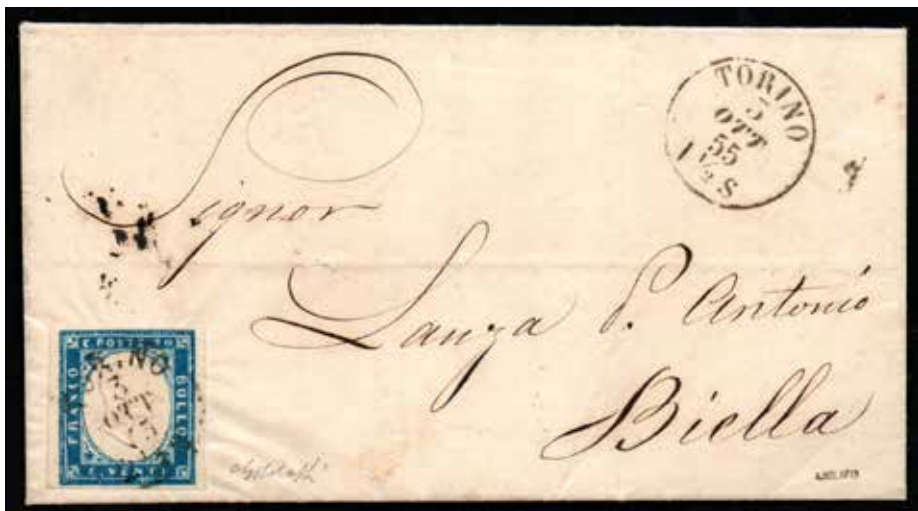 TORINO
3
OTT
55
1 ½ S
Signor
Lanza P. Antonio
Biella
C. POSTE 20
FRANCO
BOLLO
C. VENTI
TORINO
3
OTT